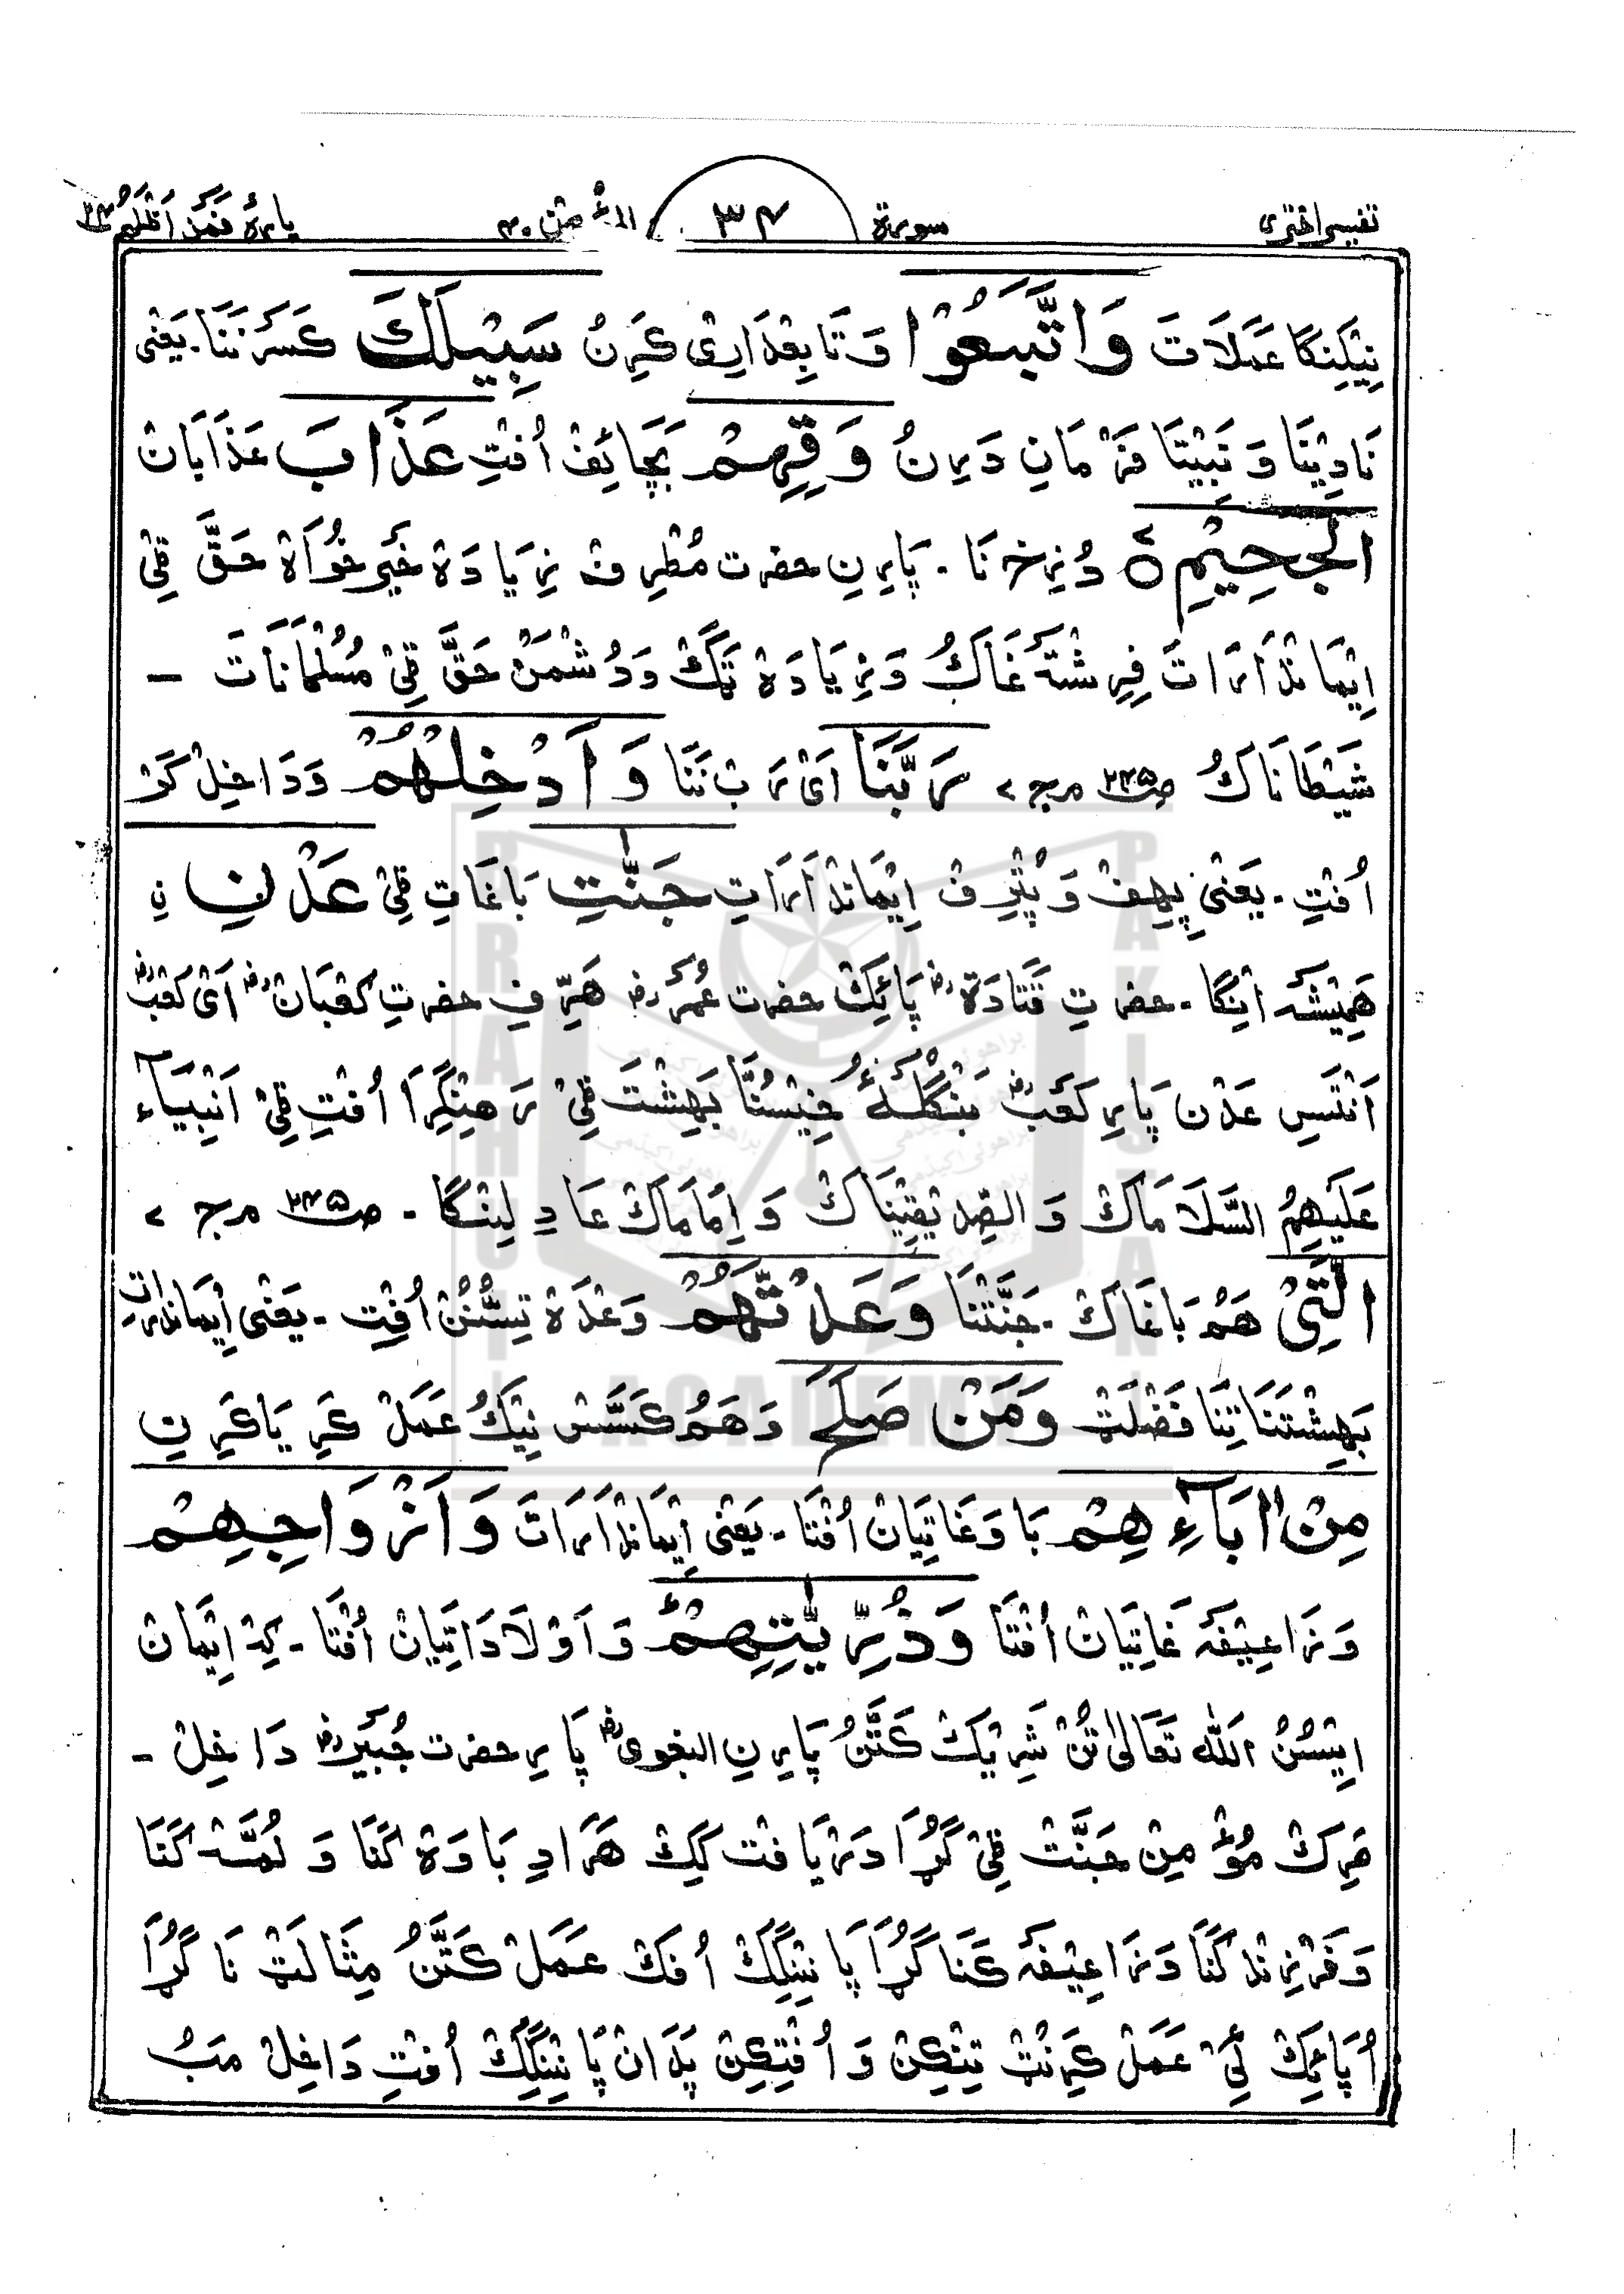 تفسیر اختری سورۃ ٣۴ المؤمن ۴٠ پارہ فمن اظلم ٢۴
نِیْکِنکَا عَمَلَاتَ وَاتَّبَعُوْا وَتَابِعْدَارِیْ کَرِنُ سَبِیْلَكَ کَسَرِنَنَا۔ یَعْنِی
نَادِیْنَا وَ نَبِیْنَا فَرْمَانِ دَیرِنُ وَقِهِمْ بَچَائِفْ اُفْتِ عَذَابَ عَذَابَانْ
الْجَحِیْمِ ۝ دُزِخنَا۔ پَارِنِ حضرت مُطْرِفْ زِیَادَہْ خَیْرخُوَاہْ حَقَّ قِیْ
اِیْمَانْدَارَاتَ فِرِشْتَہْ غَاكُ وَزِیَادَہْ تَكْ وَدُشْمَنْ حَقَّ قِیْ مُسْلْمَانَاتَ ۔
شَیْطَانَاكُ صـ ٢٣٥ مرج ٧ رَبَّنَا اَیْ رَبْ نَنَا وَاَدْخِلْهُمْ وَدَاخِلْ کَرْ
اُفْتِ۔ یَعْنِیْ پِهِفْ وَ پُتْرِفْ اِیْمَانْدَارَاتِ جَنّٰتِ بَاغَاتِ قِیْ عَدْنِ نِ
هَمِیْشَہْ اَنِنگَا۔ حضرتِ قَتَادَۃ رض پَائِكْ حضرت عُمَر رض هَرِّفِ حضرتِ کَعْبَانْ رض اَیْ کَعْب رض
اَنْتَسِ عَدْن پَارِ کَعَبْ رض بَنْگْلَہْ خِیْسُنَّا بَهِشْتَ قِیْ رَهِنْگِرَا اُفْتِ قِیْ اَنْبِیَآء
عَلَیْهِمُ السَّلَامَاكْ وَ الصِّدِّیْقِیْنَاكْ وَ اِمَامَاكْ عَادِلِیْنگَا۔ صـ ٢٣٥ مرج ٧
الَّتِیْ هَمْ بَاغَاكْ۔ جَنَّتْنَا وَعَدْتَّهُمْ وَعْدَہْ تِسُّنُنْ اُفْتِ۔ یَعْنِی اِیْمَانْدَرَاتِ
بَهِشْتَنَا تِنَا فَضْلَتْ وَمَنْ صَلَحَ وَهَمُ کَسَّسْ نِیْكْ عَمَلْ کَرِ یَاکَرِنِ
مِنْ اٰبَآءِهِمْ بَاوَغَاتِیَانْ اُفْتَا۔ یَعْنِی اِیْمَانْدَارَاتَ وَاَزْوَاجِهِمْ
وَزَاعِیْفَہْ غَاتِیَانْ اُفْتَا وَذُرِّیّٰتِهِمْ وَاَوْلَادَاتِیَانْ اُفْتَا۔ کِہْ اِیْمَانْ
اِیْسُنُ اَللّٰہ تَعَالٰی تُنْ شَرِیْكْ کَتَّنُ پَارِنِ البغوی رح پَارِ حضرت جُبَیْر رض دَاخِلْ ۔
مَرِكْ مُؤْمِنْ جَنَّتْ قِیْ گُڑَا دَرْیَافت کِكْ هَرَادِ بَاوَہْ کَنَا وَ لُمَّہْ کَنَا
وَفَرْزِنْد کَنَا وَزَاعِیْفَہْ کَنَا گُڑَا پَانِنْگِكْ اُفكْ عَمَلْ کَتَّنُ مِثَالَتْ نَا گُڑَا
اُپَاعِكْ لَیْ عَمَلْ کَرِنُتْ تِنْکِنْ وَ اُفْتِکِنْ پَدَانْ پَانِنْگِكْ اُفْتِ دَاخِلْ مَبُ